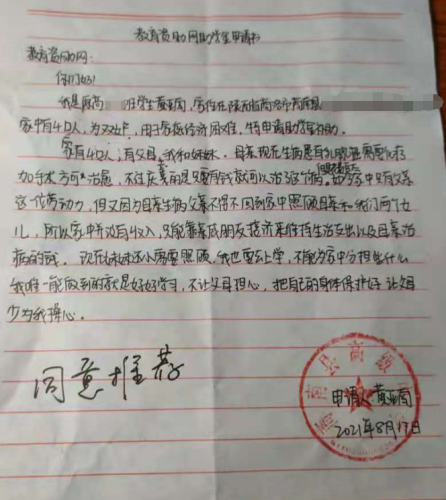 教育资助网助学生申请书
教育资助网:
你们好!
我是商高 班学生黄
家中有4口人,为双女户,由于家庭经济困难,特申请助学补助。
家有4口人:有父母、我和妹妹。母亲现在生病患有乳腺癌需要化疗
加手术方可治愈,不过庆幸的是只要有钱就可以治好这个病,家中只有父亲
这一个劳动力,但又因为母亲生病父亲不得不回到家中照顾母亲和我们两个女
儿,所以家中无收入,只能靠亲戚朋友接济来维持生活支出以及母亲治
病的钱。现在妹妹还小需要照顾,我也要上学,不能为家中分担些什么
我唯一能做到的就是好好学习,不让父母担心,把自己的身体保护好,让父母
少为我操心。
同意推荐
申请人:黄
2021年8月17日
县高级